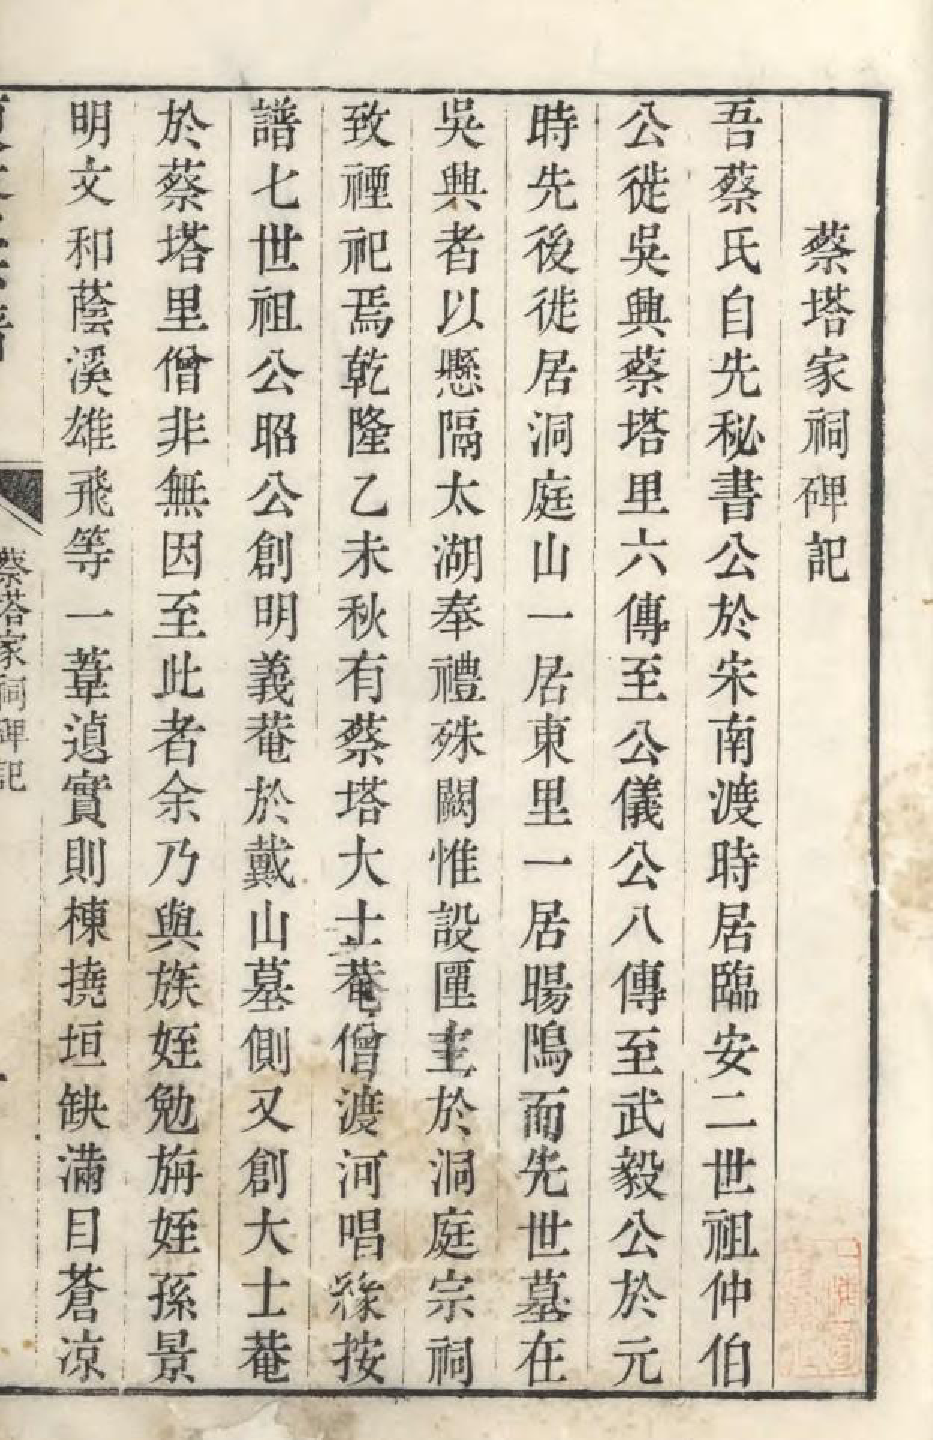 蔡塔家祠碑記
吾蔡氏自先秘書公於宋南渡時居臨安二世祖仲伯
公徙吳興蔡塔里六傳至公儀公八傳至武毅公於元
時先後徙居洞庭山一居東里一居暘隖而先世墓在
吳興者以懸隔太湖奉禮殊闕惟設匰主於洞庭宗祠
致禋祀焉乾隆乙未秋有蔡塔大士菴僧渡河唱緣按
譜七世祖公昭公創明義菴於戴山墓側又創大士菴
於蔡塔里僧非無因至此者余乃與族姪勉旃姪孫景
明文和蔭溪雄飛等一葦遉實則棟撓垣缺滿目蒼凉
蔡塔家祠碑記